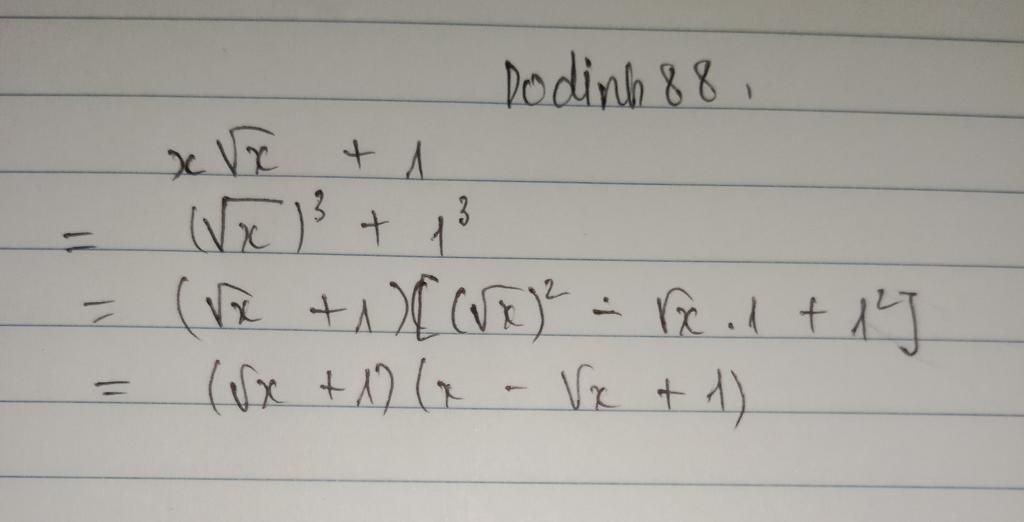 Dodinh 88.
x√x + 1
= (√x)³ + 1³
= (√x + 1)[(√x)² - √x . 1 + 1²]
= (√x + 1)(x - √x + 1)